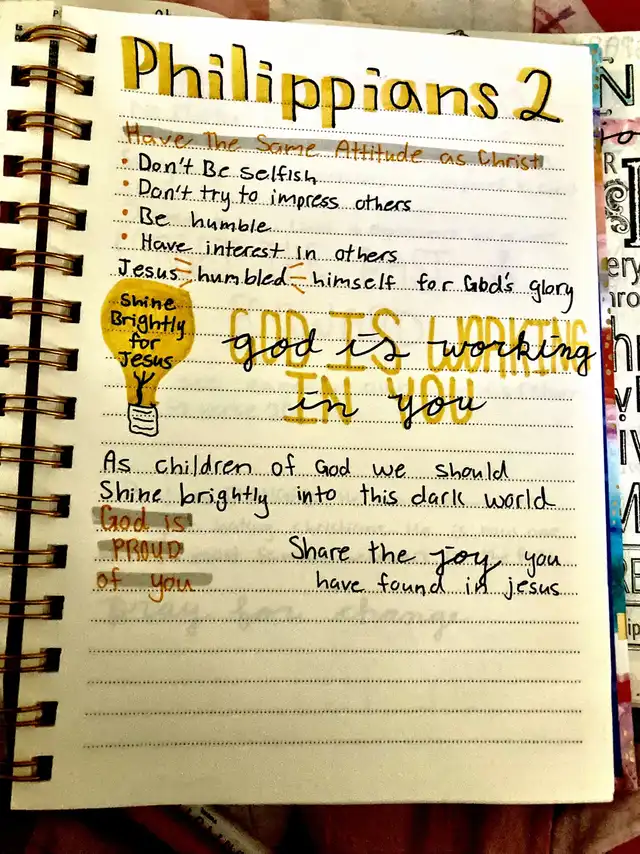 Philippians 2
Have The Same Attitude as Christ
• Don't Be selfish
• Don't try to impress others
• Be humble
• Have interest in others
Jesus humbled himself for God's glory
Shine
Brightly
for
Jesus
GOD IS WORKING
god is working
IN YOU
in you
As children of God we should
Shine brightly into this dark world
God is
PROUD
of you
Share the joy you
have found in jesus